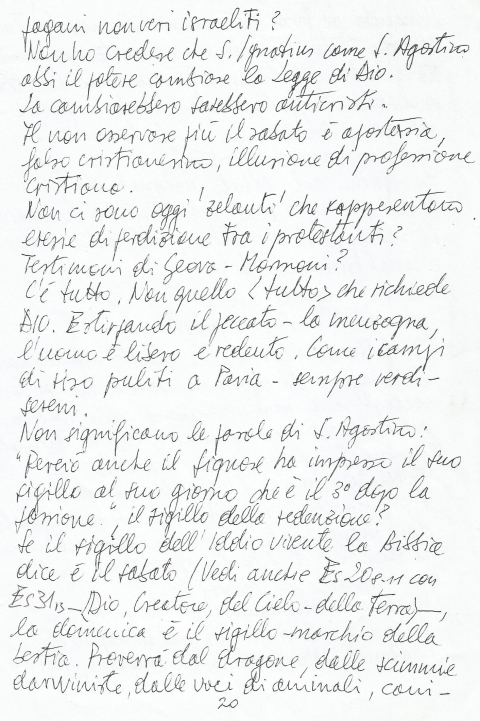 pagani non veri israeliti?
Non ho credere che S. Ignatius come S. Agostino
abbi il potere cambiare la Legge di Dio.
La cambiarebbero sarebbero anticristi.
Il non osservare più il sabato è apostasia,
falso cristianesimo, illusione di professione
cristiana.
Non ci sono oggi 'zelanti' che rappresentano
eresie di perdizione tra i protestanti?
Testimoni di Geova - Mormoni?
C'è tutto. Non quello <tutto> che richiede
DIO. Estirpando il peccato - la menzogna,
l'uomo è libero e redento. Come i campi
di riso puliti a Pavia - sempre verdi -
sereni.
Non significano le parole di S. Agostino:
"Perciò anche il Signore ha impresso il suo
sigillo al suo giorno che è il 3º dopo la
passione.", il sigillo della redenzione?
Se il sigillo dell'Iddio vivente la Bibbia
dice è il sabato (Vedi anche Es 20 8-11 con
Es 31 13 - (Dio, Creatore, del Cielo - della Terra) -,
la domenica è il sigillo - marchio della
bestia. Proverrà dal dragone, dalle scimmie
darwiniste, dalle voci di animali, cani -
20